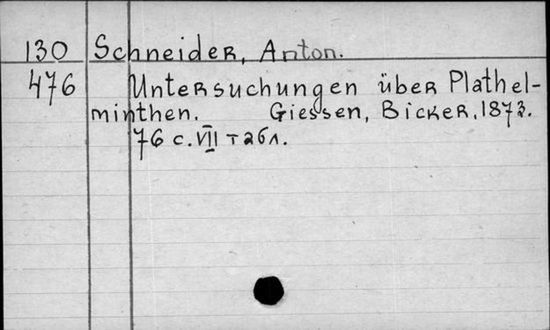 130 Schneider, Anton.
476 Untersuchungen über Plathel-
minthen. Giessen, Bicker, 1873.
76 с. VII табл.